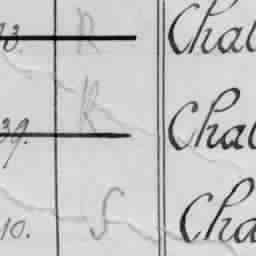 3. R Chal
39. R Chal
10. S Cha